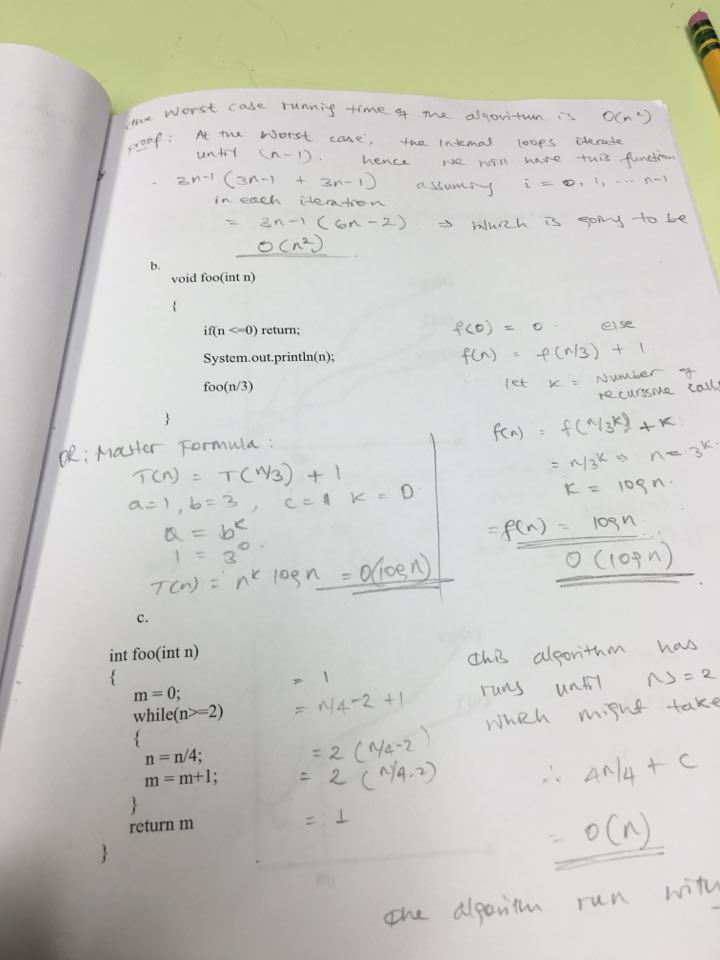 the worst case runnig time of the algorithm is O(n²)
proof: At the worst case, the internal loops iterate
until (n-1). hence we will have this function
3n-1 (3n-1 + 3n-1) assuming i = 0, 1, ... n-1
in each iteration
= 3n-1 (6n-2) ⇒ which is going to be
O(n²)
b.
void foo(int n)
{
if(n <=0) return;
System.out.println(n);
foo(n/3)
}
f(0) = 0. else
f(n) = f(n/3) + 1
let K = Number of
recurssive calls
f(n) = f(n/3ᴷ) + K
= n/3ᴷ ⇒ n = 3ᴷ.
K = logn.
= f(n) = logn.
O(logn)
OR: Master Formula:
T(n) = T(n/3) + 1
a=1, b=3, c=1 K = 0
a = bᴷ
1 = 3⁰.
T(n) = nᴷ logn = O(logn)
c.
int foo(int n)
{
m = 0; = 1
while(n>=2) = n/4-2 +1
{
n = n/4; = 2 (n/4-2)
m = m+1; = 2 (n/4-2)
}
return m = 1
}
this algorithm has
runs until n>=2
which might take
∴ 4n/4 + C
= O(n)
The algorithm run with